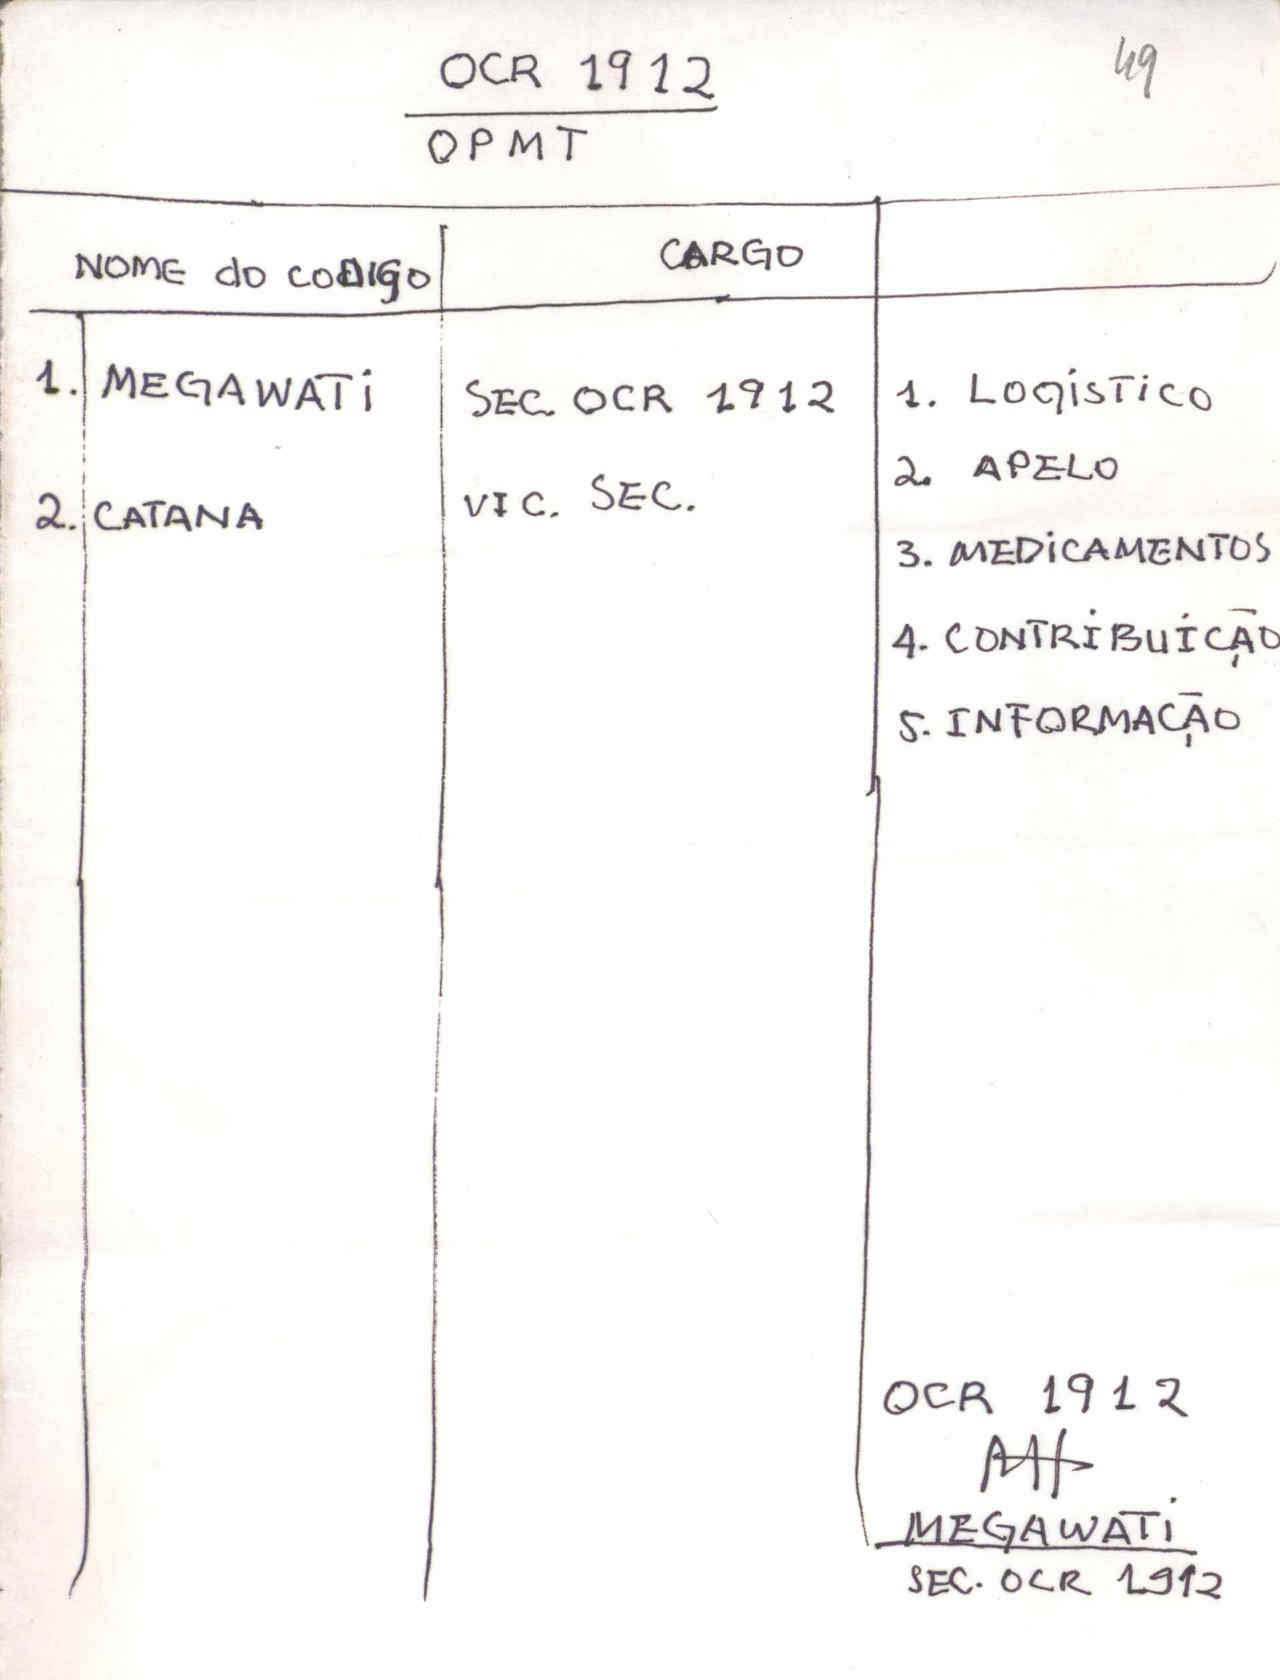 49
OCR 1912
OPMT
NOME do CODIGO CARGO
1. MEGAWATi SEC. OCR 1912 1. LOGíSTiCO
2. APELO
2. CATANA VIC. SEC.
3. MEDiCAMENTOS
4. CONTRIBUIÇÃO
5. INFORMAÇÃO
OCR 1912
MEGAWATi
SEC. OCR 1912